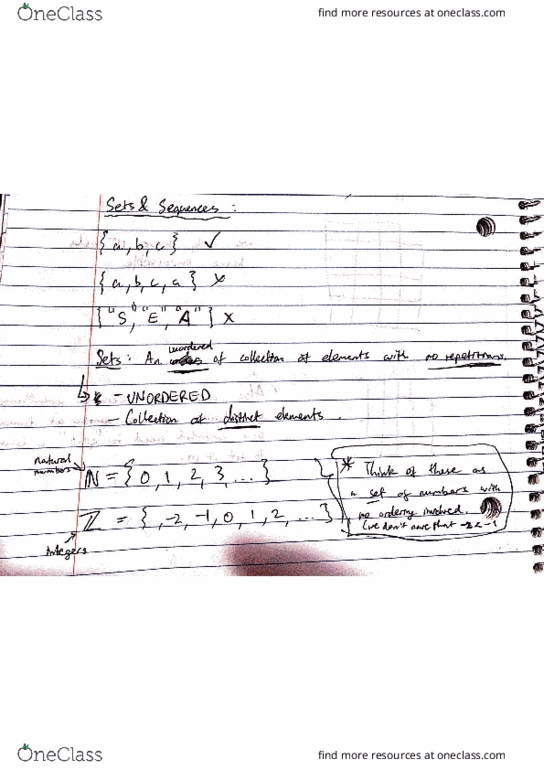 OneClass
find more resources at oneclass.com
Sets & Sequences :
{ a, b, c } ✓
{ a, b, c, a } x
{ "S", "E", "A" } x
unordered
Sets : An of collection of elements with no repetitions.
- UNORDERED
- Collection of distinct elements .
natural numbers
ℕ = { 0, 1, 2, 3, ... }
ℤ = { , -2, -1, 0, 1, 2, ... }
integers
* Think of these as
a set of numbers with
no ordering involved.
(we don't care that -2 < -1
OneClass
find more resources at oneclass.com